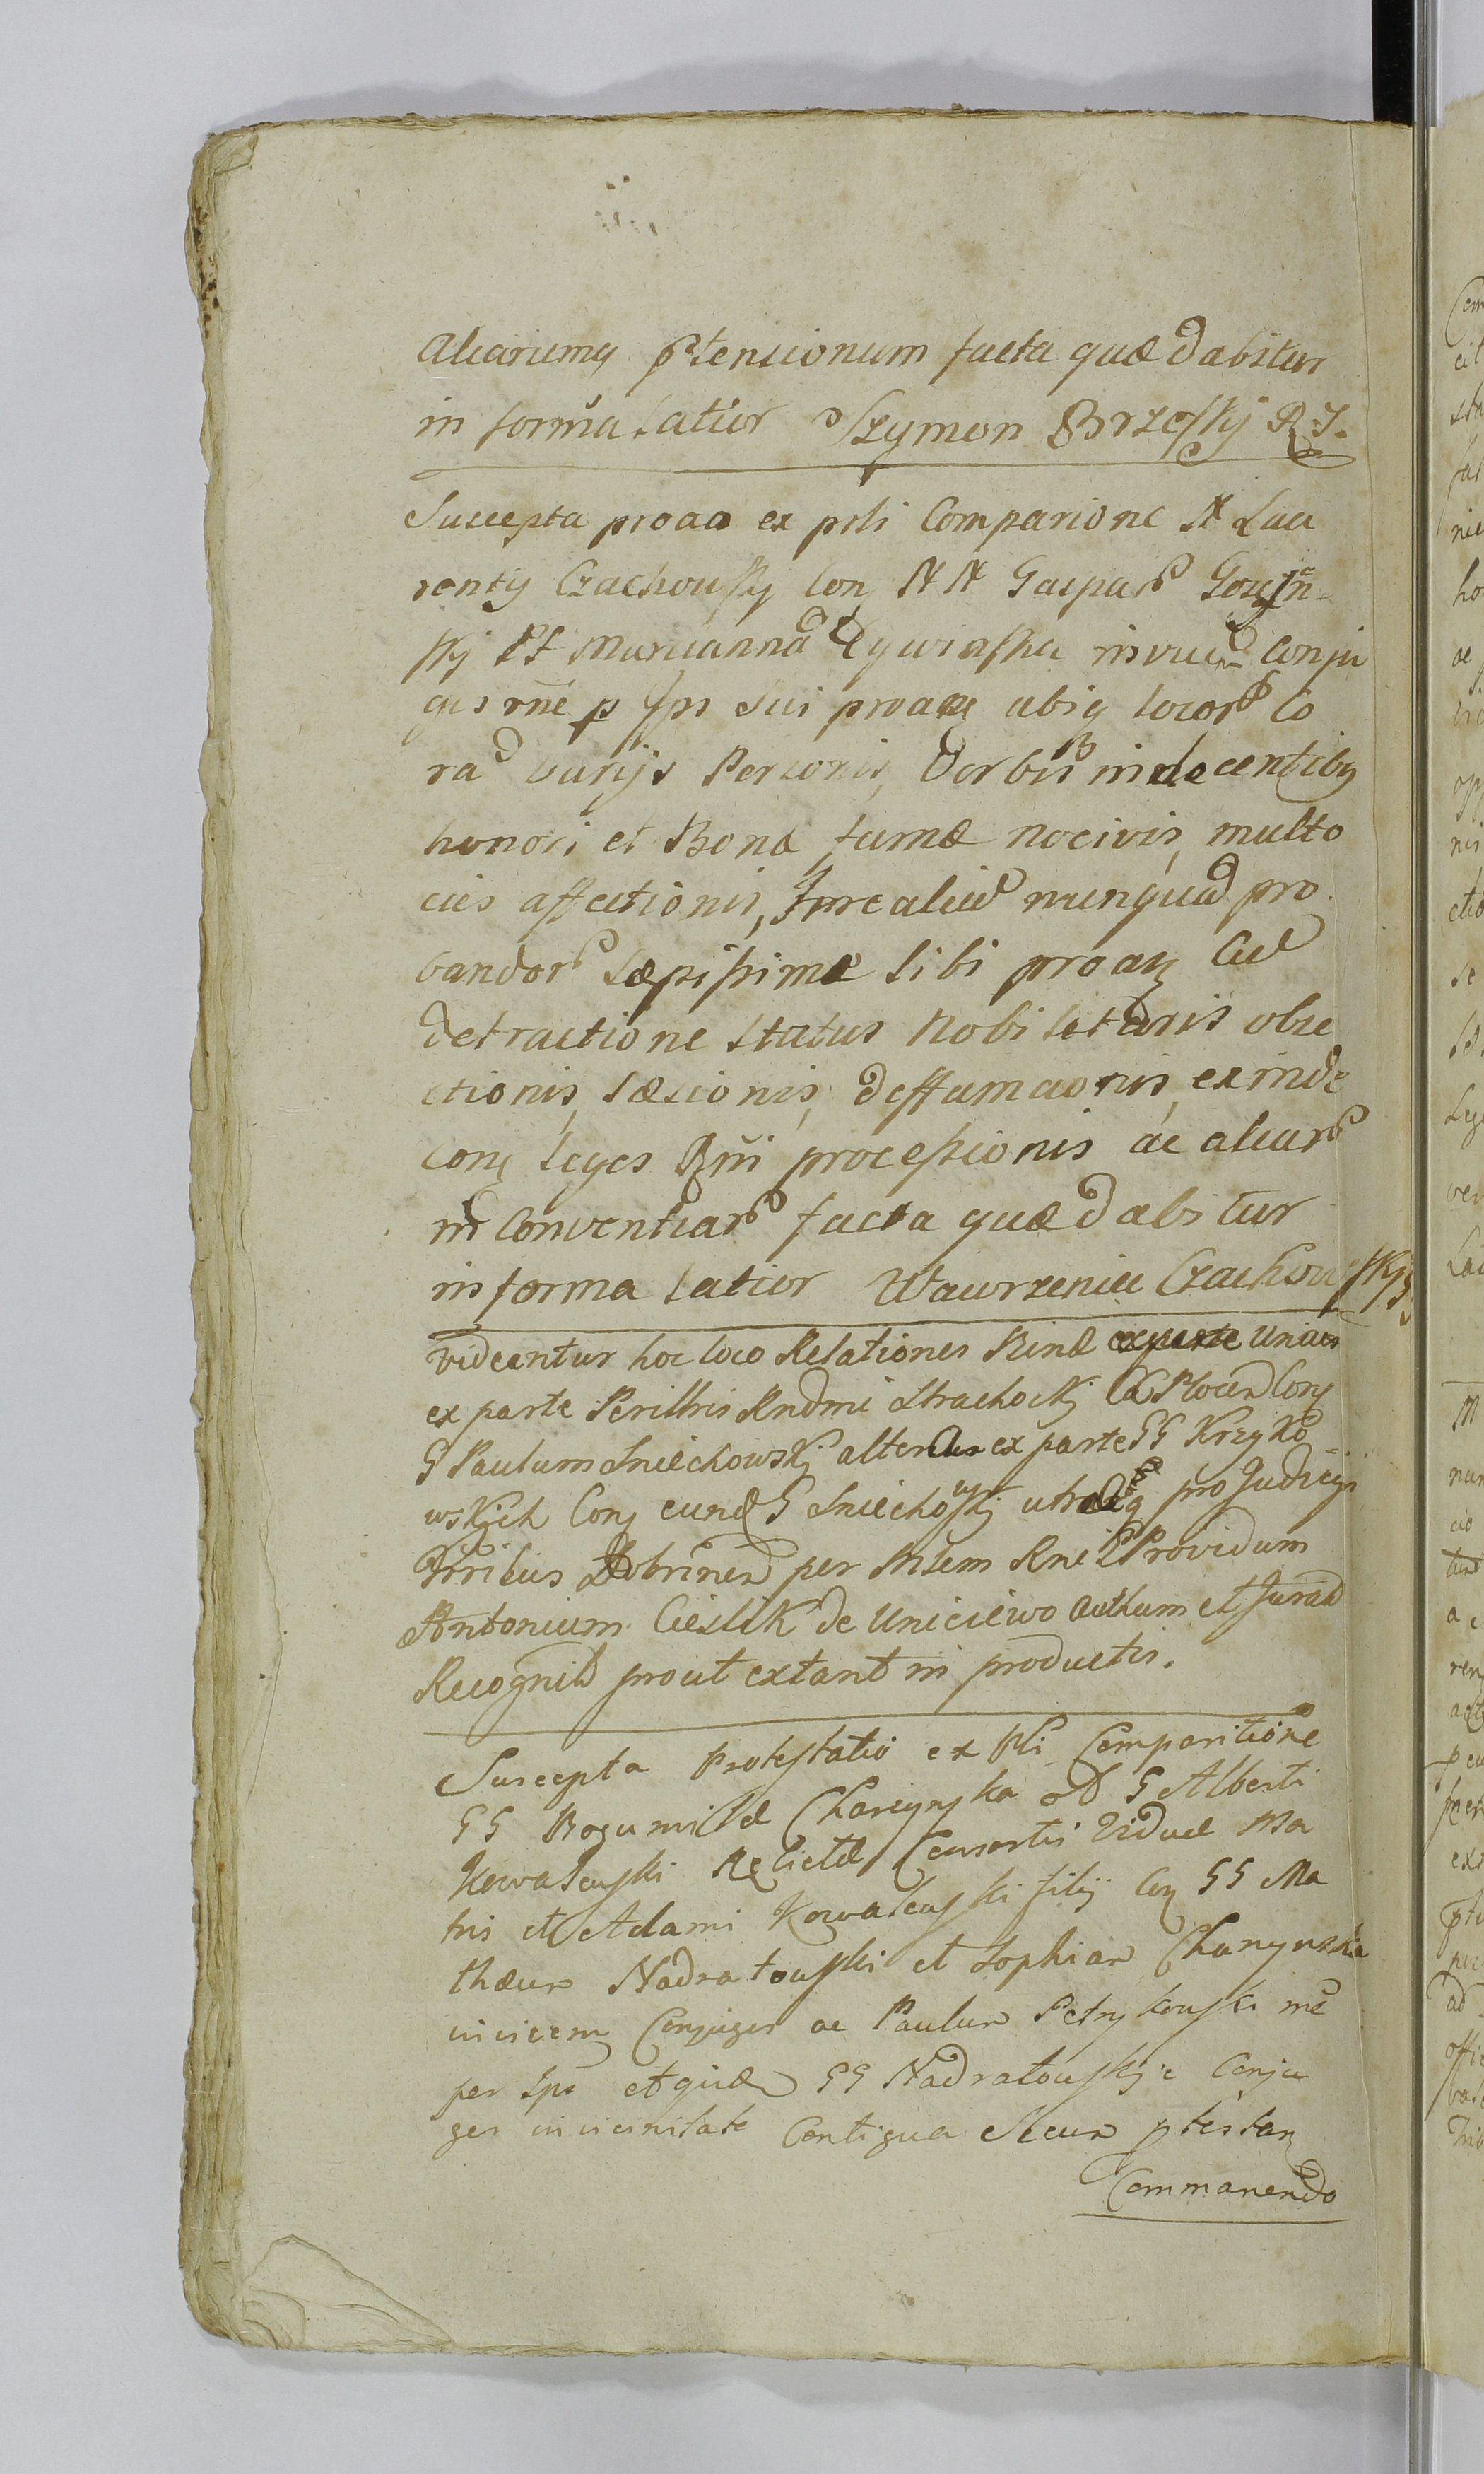 aliarumq ptensionum facta quæ dabitur
in forma latior Szymon Brzeskij R. S.
Suscepta proaa ex psti Comparione N Lau
rentij Czachowskij Con N N Gaspar
skij et Mariannã Zywinska invicem Conju
ges rñe p Ips sui proanq ubiq locor Co
rã varijs Personis, Verbis indecentibq
honori et Bonæ famæ nocivis, multo
cies affectionis, Jure aliud nunquã pro
bandor sæpissimæ sibi proanq Cũ
detractione status Nobilitaris obie
ctionis, læsionis, deffamaonis, exinde
conq leges Rgni processionis ac aliar
in conventiar facta quæ dabitur
in forma latior Wawrzeniec Czachowskij
videantur hoc loco Relationes Binæ unius
ex parte Perillris Rndmi Strachockij Plocen Conq
G Paulum Sniechowskij alterius ex parte GG Krzyko
wskich Conq eund G Sniechowskij utraq pro Judicijs
Trribus Dobrinen per Mlem Rnei Providum
Antonium Cieslik de Uniciewo authum et Jurat
Recognit prout extant in productis.
Suscepta Protestatio ex Psti Comparitione
GG Bogumilæ Charzynska olt G Alberti
Kowalewski Relictæ Consortis Viduæ Ma
tris et Adami Kowalewski filij Conq GG Ma
thæum Nadratowski et Sophiam Charzynska
invicem Conjuges ac Paulum Petrykowski rnẽ
per Ips et quidem GG Nadratowskje Conju
ges in vicinitate Contigua Secum ptestanq
Commanendo